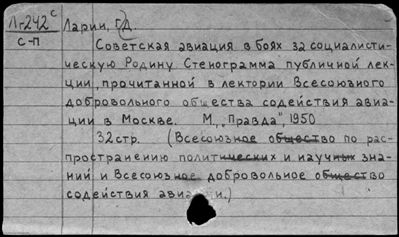 Л-242 с
С-П
Ларин, Г.Д
Советская авиация в боях за социалисти-
ческую Родину Стенограмма публичной лек-
ции, прочитанной в лектории Всесоюзного
добровольного общества содействия авиа-
ции в Москве. М., "Правда", 1950
32 стр. (Всесоюзное общество по рас-
пространению политических и научных зна-
ний и Всесоюзное добровольное общество
содействия авиации.)